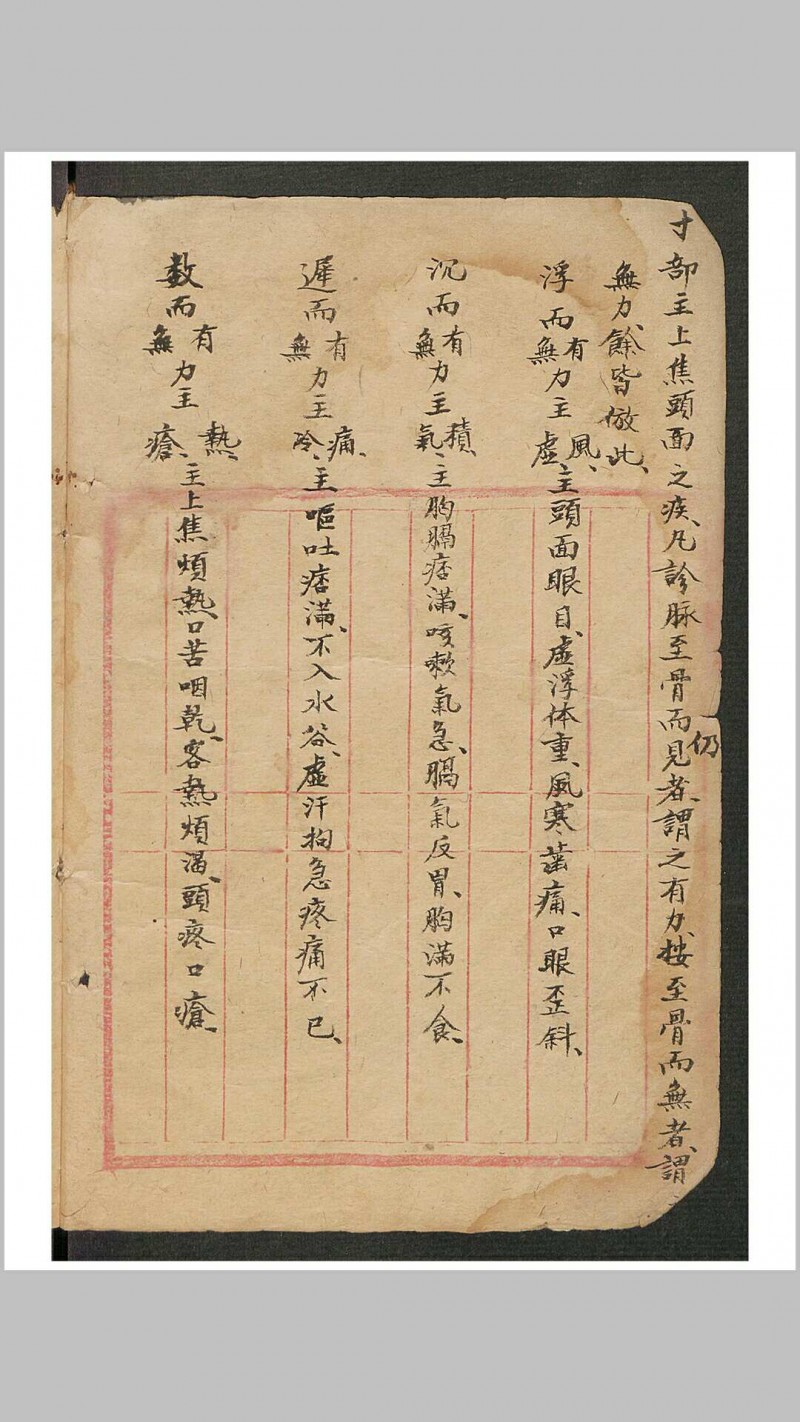 寸部主上焦頭面之疾、凡診脉至骨而仍見者、謂之有力、按至骨而無者、謂
無力、餘皆倣此、
浮而有無力主風虛、主頭面眼目、虛浮体重、風寒齒痛、口眼歪斜、
沉而有無力主積氣、主胸膈痞滿、咳嗽氣急、膈氣反胃、胸滿不食、
遲而有無力主痛冷、主嘔吐痞滿、不入水谷、虛汗拘急疼痛不已、
数而有無力主熱瘡、主上焦煩熱、口苦咽乾、客熱煩渴、頭疼口瘡、